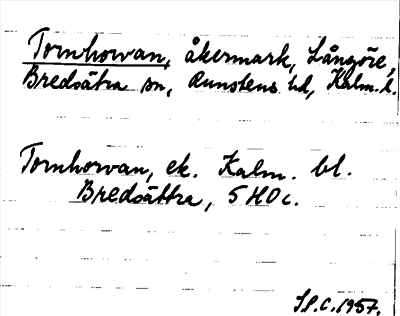 Tornhorvan, åkermark, Långöre,
Bredsätra sn, Runstens hd, Kalm. l.
Tornhorvan, ek. Kalm. bl.
Bredsättra, 5 H 0 c.
S.P.C. 1957.